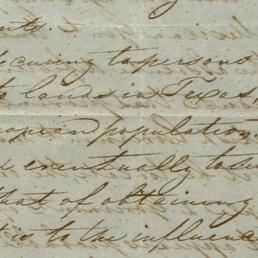 ecuring to persons
lands in Texas,
opean population.
eventually to
that of obtaining
is to the influence